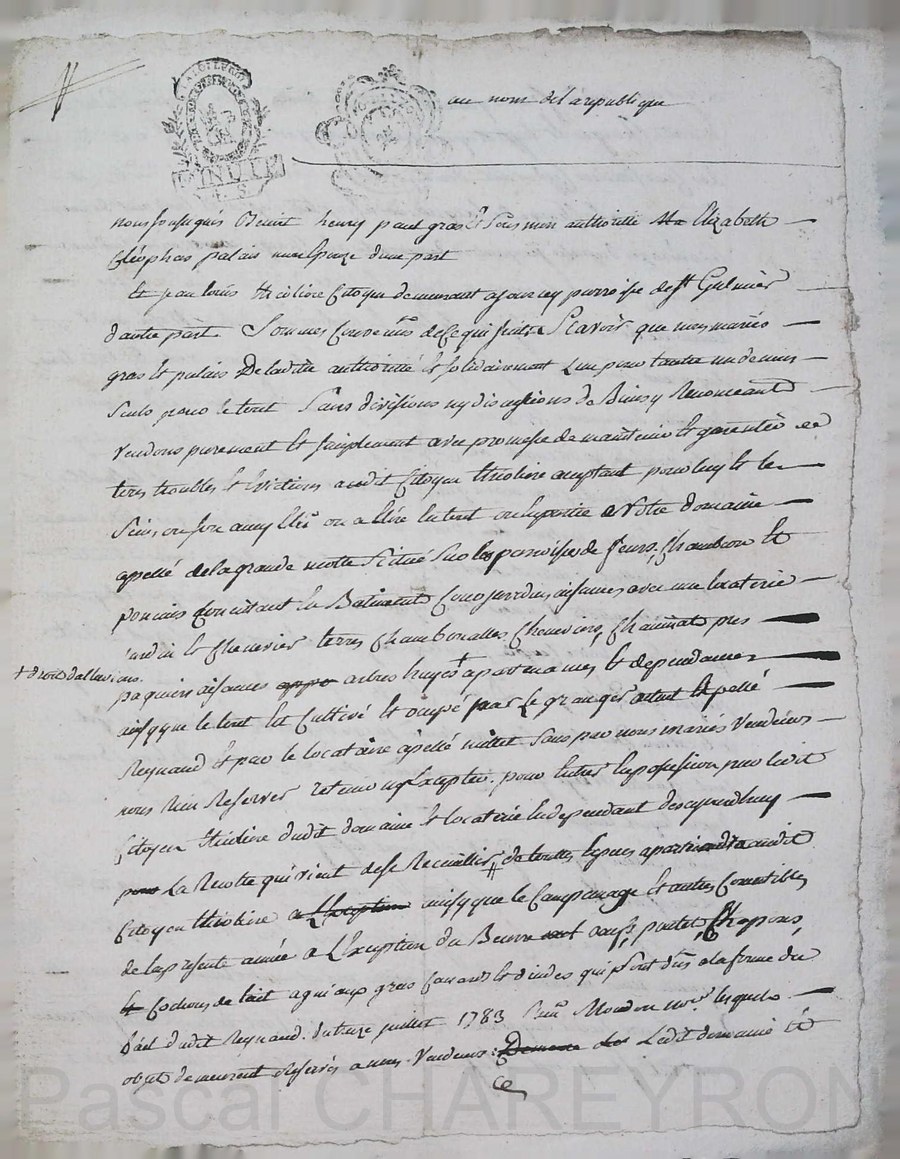 au nom de la republique
nous soussignés Benoit henry paul gras et sous mon authorité Elizabeth
Cléophas palais mon épouze d'une part
Et jean louis thiolière Citoyen demeurant a parroisse de st Galmier
d'autre part. Sommes Convenus de Ce qui suit Scavoir que nous mariés
gras et palais De ladite authorité et solidairement L'un pour l'autre un de nous
seuls pour le tout sans divisions ny discutions de Biens y Renonceant
vendons purement et simplement avec promesse de maintenir et garentir de
tous troubles et Evictions audit Citoyen thiolière acceptant pour luy et les
siens, ou son amy Elû ou a Elire en tout ou en partie Notre domaine
appellé de la grande motte Scitué sur les parroisses de feurs, Chambeon et
poncins Consistant en Batiments Cours jardins aisances avec une locaterie
jardin et Chenevier terres Chambonalles Cheneviers, Chaninats prés
+ droit d'alluvions.
paquiers aisances appa arbres hayes + apartenances et dependances
ainsy que le tout Est Cultivé et ocupé par Le granger actuel appellé
Reynaud et par le locataire apellé millet Sans par nous mariés Vendeurs
nous Rien Reserver retenir ny Excepter. pour Entrer En possession par ledit
Citoyen thiolière dudit domaine et locaterie Independant des aujourdhuy
La Recolte qui vient de se Recueillir de touttes Espèces apartiendra audit
Citoyen thiolière a L'Exception ainsy que le Campanage et autres Comestibles
de la presente année a L'Exception du Beurre œufs, poulets, Chapons,
et Cochons de lait agneaux gras Canards et dindes qui sont dus a la forme du
Bail dudit Reynaud. du juillet 1783 Reçu Mondon nore. lesquels
objets demeurent Reservés a nous Vendeurs. Ledit domaine et
Ce
Pascal CHAREYRON